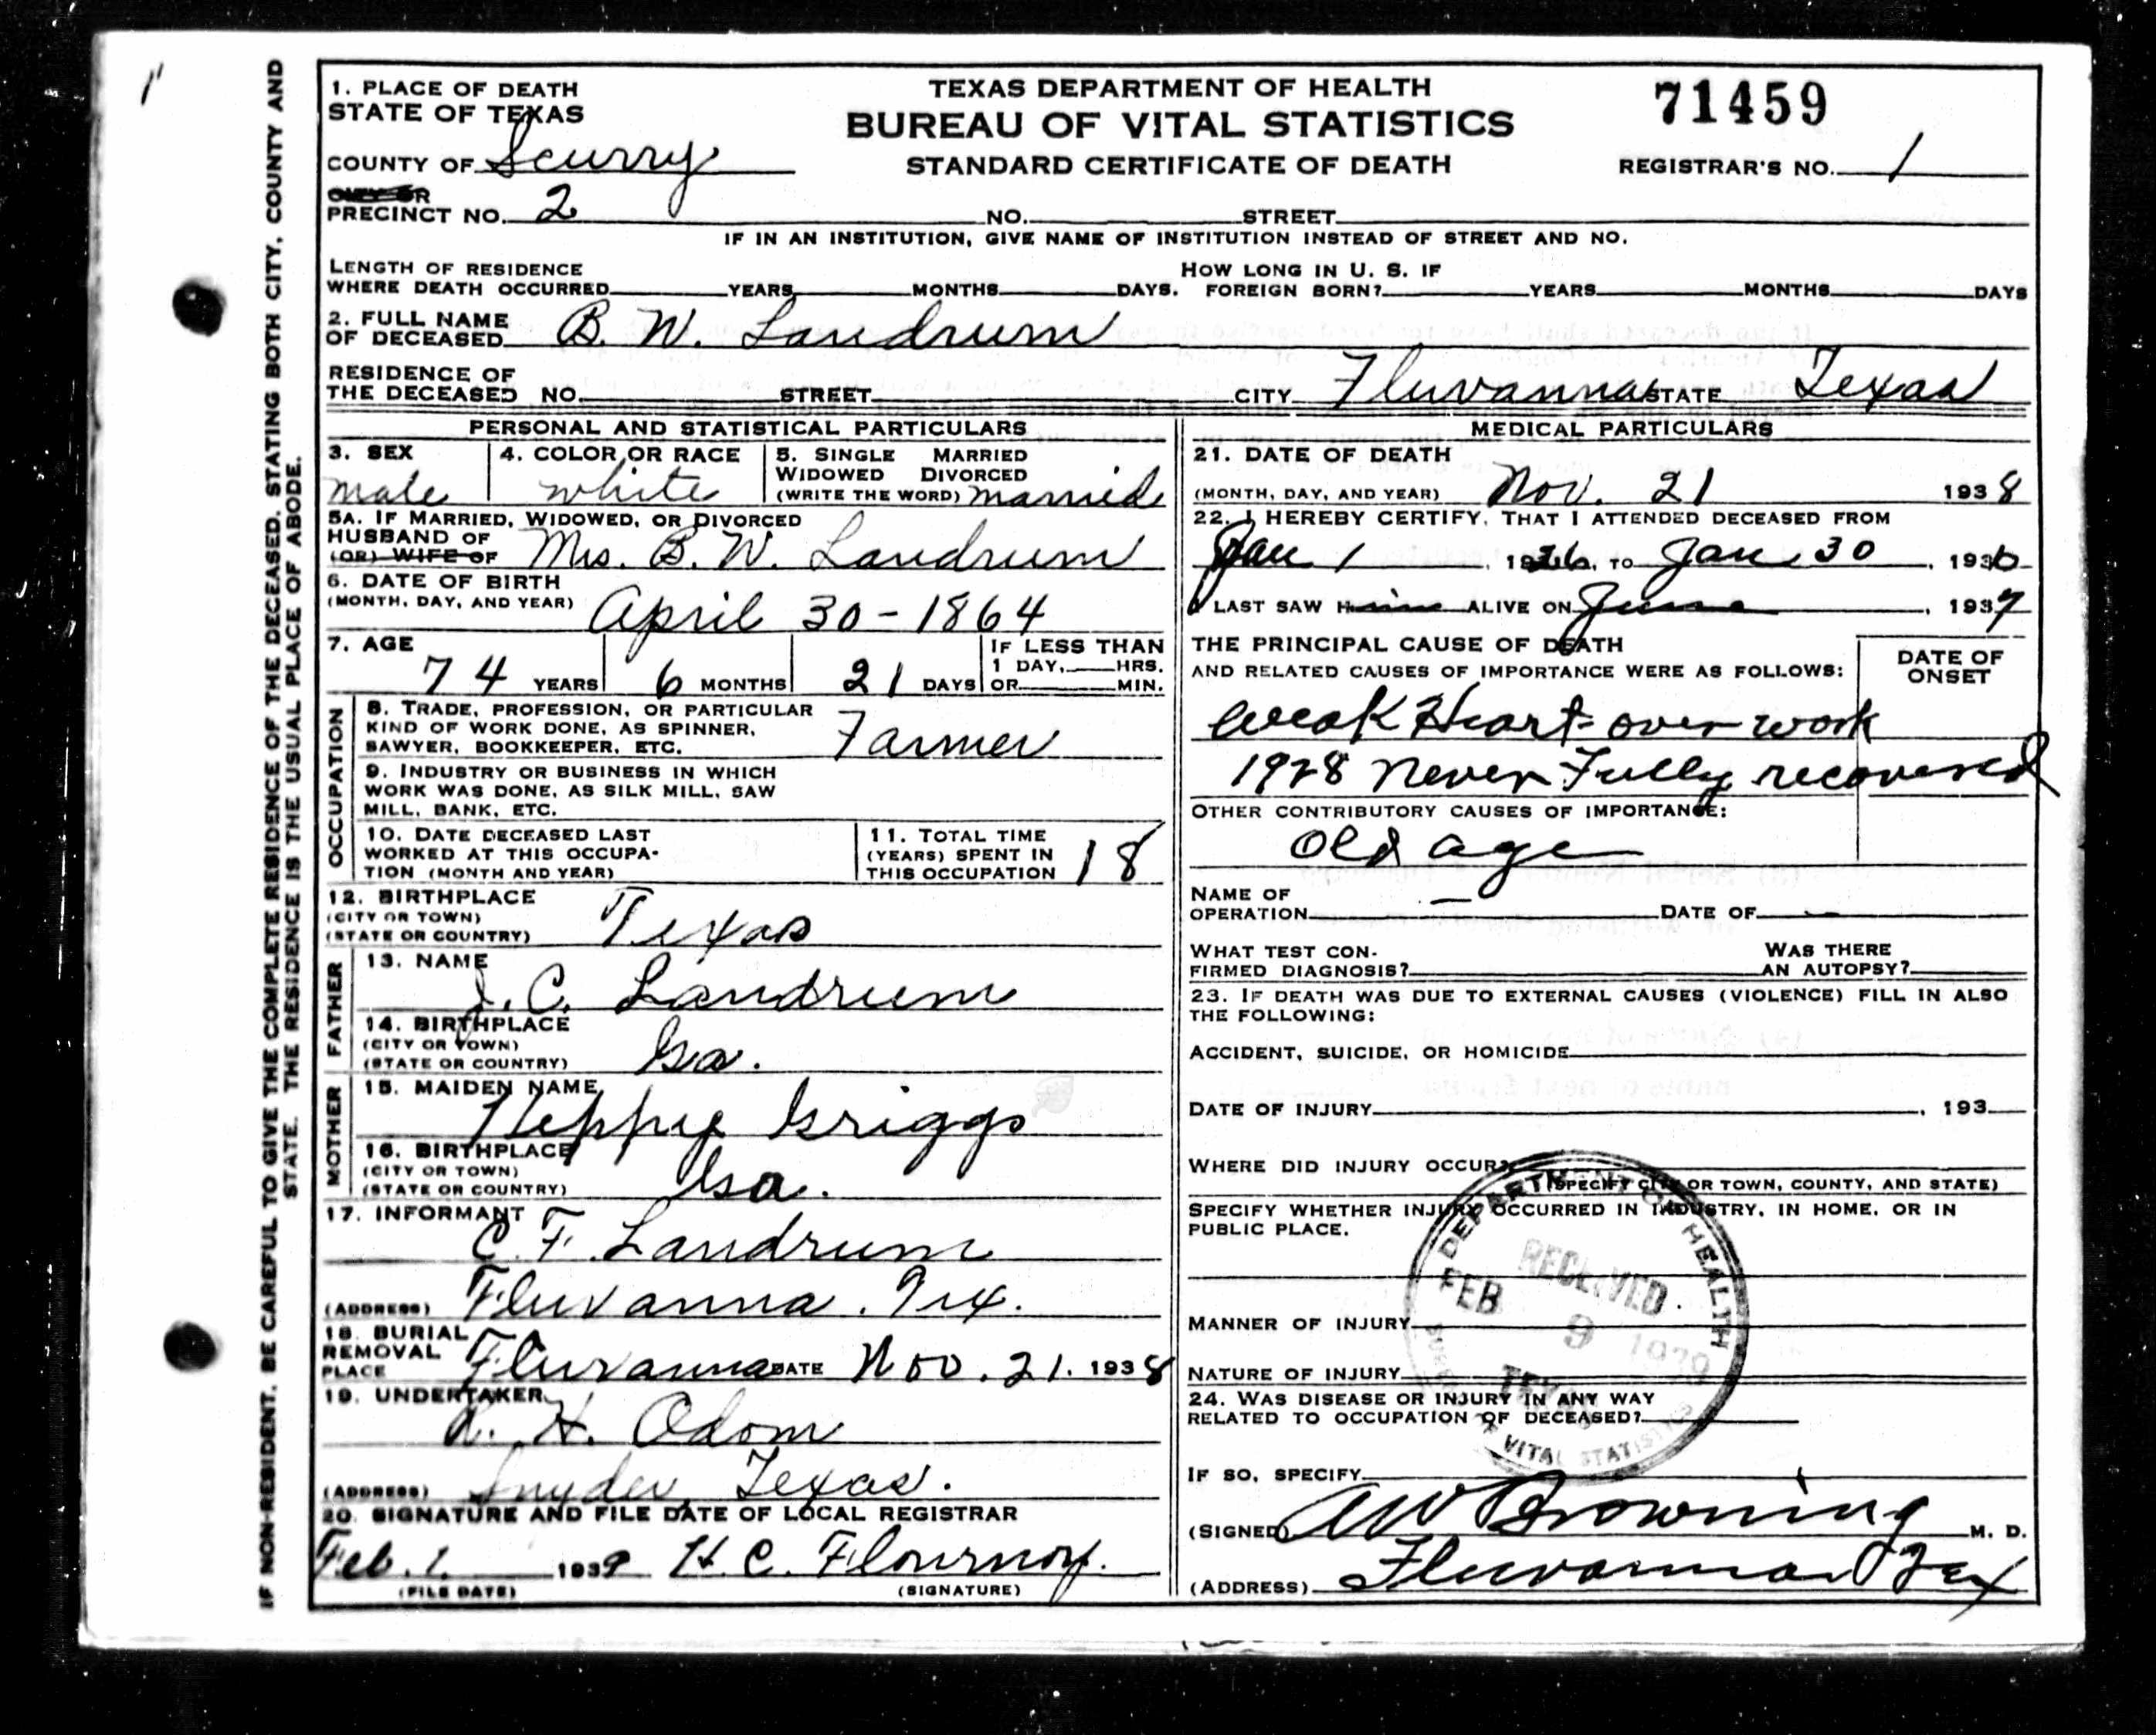 IF NON-RESIDENT, BE CAREFUL TO GIVE THE COMPLETE RESIDENCE OF THE DECEASED, STATING BOTH CITY, COUNTY AND
STATE. THE RESIDENCE IS THE USUAL PLACE OF ABODE.
1. PLACE OF DEATH
STATE OF TEXAS
COUNTY OF Scurry
CITY OR
PRECINCT NO. 2 NO. STREET
TEXAS DEPARTMENT OF HEALTH
BUREAU OF VITAL STATISTICS
STANDARD CERTIFICATE OF DEATH
71459
REGISTRAR'S NO. 1
IF IN AN INSTITUTION, GIVE NAME OF INSTITUTION INSTEAD OF STREET AND NO.
LENGTH OF RESIDENCE
WHERE DEATH OCCURRED YEARS MONTHS DAYS.
HOW LONG IN U. S. IF
FOREIGN BORN? YEARS MONTHS DAYS
2. FULL NAME
OF DECEASED B. W. Landrum
RESIDENCE OF
THE DECEASED NO. STREET CITY Fluvanna STATE Texas
PERSONAL AND STATISTICAL PARTICULARS
3. SEX
male
4. COLOR OR RACE
white
5. SINGLE MARRIED
WIDOWED DIVORCED
(WRITE THE WORD) married
5A. IF MARRIED, WIDOWED, OR DIVORCED
HUSBAND OF
(OR) WIFE OF Mrs. B. W. Landrum
6. DATE OF BIRTH
(MONTH, DAY, AND YEAR) April 30-1864
7. AGE
74 YEARS 6 MONTHS 21 DAYS
IF LESS THAN
1 DAY, HRS.
OR MIN.
OCCUPATION
8. TRADE, PROFESSION, OR PARTICULAR
KIND OF WORK DONE, AS SPINNER,
SAWYER, BOOKKEEPER, ETC. Farmer
9. INDUSTRY OR BUSINESS IN WHICH
WORK WAS DONE, AS SILK MILL, SAW
MILL, BANK, ETC.
10. DATE DECEASED LAST
WORKED AT THIS OCCUPA-
TION (MONTH AND YEAR)
11. TOTAL TIME
(YEARS) SPENT IN
THIS OCCUPATION 18
12. BIRTHPLACE
(CITY OR TOWN)
(STATE OR COUNTRY) Texas
FATHER
13. NAME
J. C. Landrum
14. BIRTHPLACE
(CITY OR TOWN)
(STATE OR COUNTRY) Ga.
MOTHER
15. MAIDEN NAME
Heppie Griggs
16. BIRTHPLACE
(CITY OR TOWN)
(STATE OR COUNTRY) Ga.
17. INFORMANT
C. F. Landrum
(ADDRESS) Fluvanna, Tex.
18. BURIAL
REMOVAL
PLACE Fluvanna DATE Nov. 21. 1938
19. UNDERTAKER
H. Odom
(ADDRESS) Snyder, Texas.
20. SIGNATURE AND FILE DATE OF LOCAL REGISTRAR
Feb. 1. 1939 H. C. Flournoy.
(FILE DATE) (SIGNATURE)
MEDICAL PARTICULARS
21. DATE OF DEATH
(MONTH, DAY, AND YEAR) Nov. 21 1938
22. I HEREBY CERTIFY, THAT I ATTENDED DECEASED FROM
Jan 1, 1936, TO Jan 30, 1936
I LAST SAW Him ALIVE ON June, 1937
THE PRINCIPAL CAUSE OF DEATH
AND RELATED CAUSES OF IMPORTANCE WERE AS FOLLOWS:
DATE OF
ONSET
Weak Heart - over work
1928 never Fully recovered
OTHER CONTRIBUTORY CAUSES OF IMPORTANCE:
Old age
NAME OF
OPERATION — DATE OF —
WHAT TEST CON-
FIRMED DIAGNOSIS?
WAS THERE
AN AUTOPSY?
23. IF DEATH WAS DUE TO EXTERNAL CAUSES (VIOLENCE) FILL IN ALSO
THE FOLLOWING:
ACCIDENT, SUICIDE, OR HOMICIDE
DATE OF INJURY , 193
WHERE DID INJURY OCCUR?
(SPECIFY CITY OR TOWN, COUNTY, AND STATE)
SPECIFY WHETHER INJURY OCCURRED IN INDUSTRY, IN HOME, OR IN
PUBLIC PLACE.
MANNER OF INJURY
NATURE OF INJURY
24. WAS DISEASE OR INJURY IN ANY WAY
RELATED TO OCCUPATION OF DECEASED?
IF SO, SPECIFY
(SIGNED) A W Browning M. D.
(ADDRESS) Fluvanna Tex
DEPARTMENT OF HEALTH
RECEIVED
FEB 9 1939
TEXAS
BUREAU OF VITAL STATISTICS